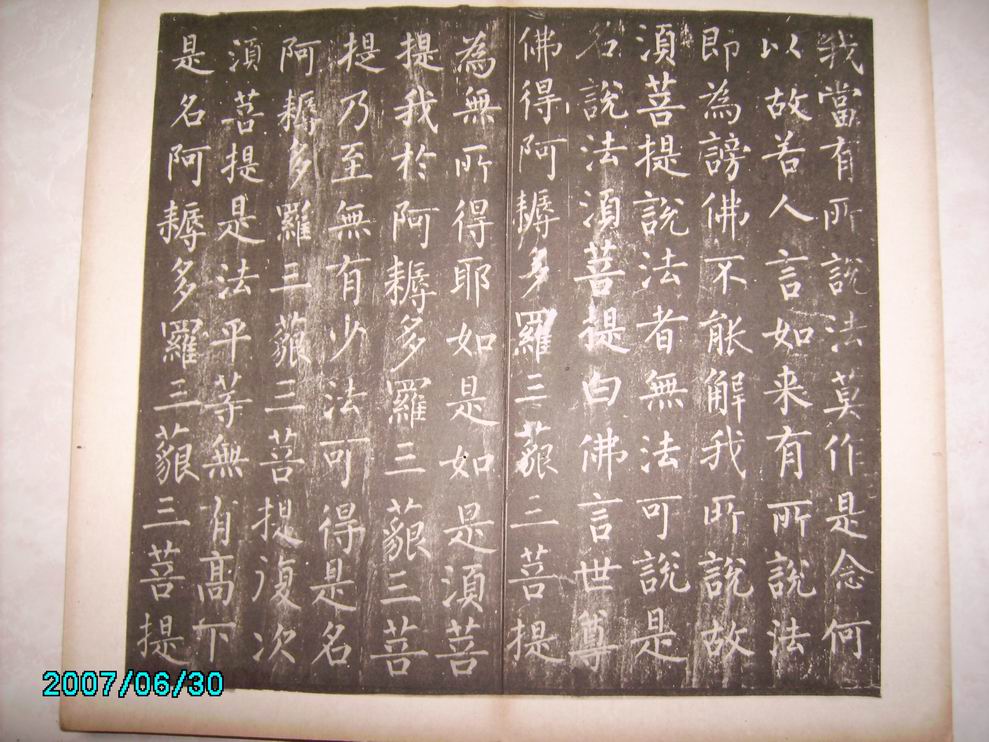 我當有所說法莫作是念何
以故若人言如来有所說法
即為謗佛不能解我所說故
湏菩提說法者無法可說是
名說法湏菩提白佛言世尊
佛得阿耨多羅三藐三菩提
為無所得耶如是如是湏菩
提我於阿耨多羅三藐三菩
提乃至無有少法可得是名
阿耨多羅三藐三菩提復次
湏菩提是法平等無有高下
是名阿耨多羅三藐三菩提
2007/06/30